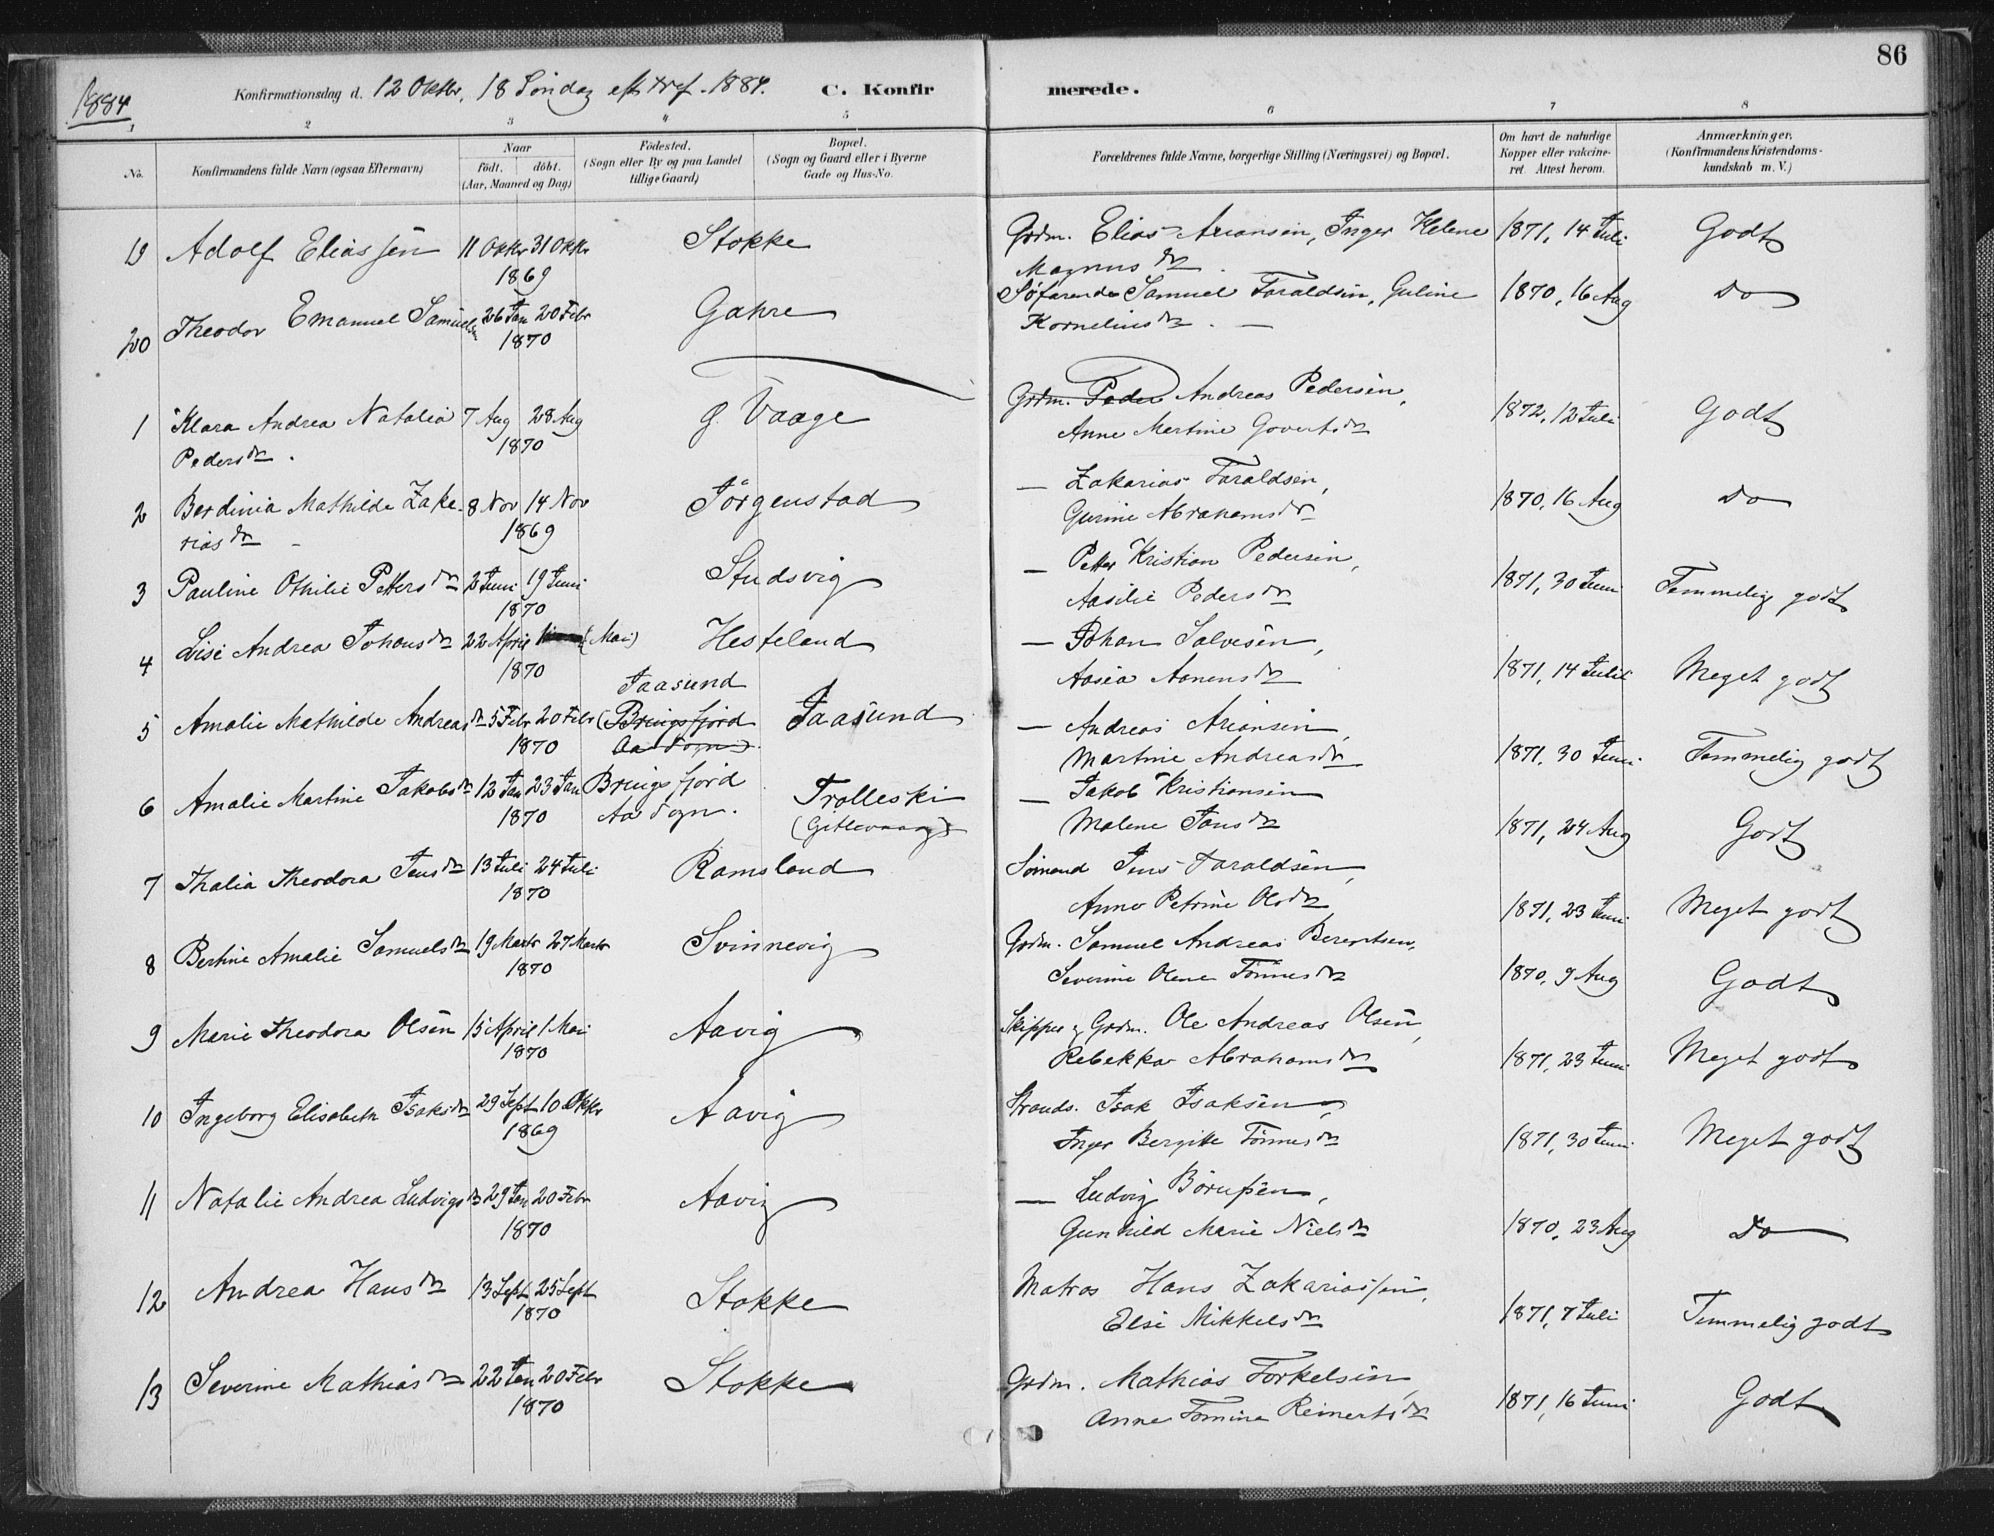 86
1884
Konfirmationsdag d. 12 Oktbr, 18 Søndag eft tref. 1884. C. Konfirmerede.
1 2 3 4 5 6 7 8
No. Konfirmandens fulde Navn (ogsaa Efternavn) Naar født. døbt. (Aar, Maaned og Dag) Fødested. (Sogn eller By og paa Landet tillige Gaard) Bopæl. (Sogn og Gaard eller i Byerne Gade og Hus-No. Forældrenes fulde Navne, borgerlige Stilling (Næringsvei) og Bopæl. Om havt de naturlige Kopper eller vakcineret. Attest herom. Anmærkninger. (Konfirmandens Kristendomskundskab m. V.)
19 Adolf Eliassen 11 Oktbr 31 Oktbr Stokke Grdm. Elias Ariansen, Inger Helene 1871, 14 Juli Godt
1869 Magnusdtr.
20 Theodor Emanuel Samuelsen 26 Jan 20 Febr Gahre Søfarende Samuel Taraldsen, Guline 1870, 16 Aug Do
1870 Korneliusdtr. —
1 Klara Andrea Natalia 7 Aug 28 Aug g. Vaage Grdm. Peder Andreas Pedersen, 1872, 12 Juli Godt
Pedersdtr. 1870 Anne Martine Govertsdtr
2 Berdinia Mathilde Zake- 8 Nov 14 Nov Jørgenstad — Zakarias Taraldsen, 1870, 16 Aug Do
riasdtr 1869 Gurine Abrahamsdtr
3 Pauline Othilie Pettersdtr 2 Juni 19 Juni Studsvig — Petter Kristian Pedersen, 1871, 30 Juni Temmelig godt
1870 Aasilie Pedersdtr
4 Lise Andrea Johansdtr 22 April 1 (Mai) Hesteland — Johan Salvesen, 1871, 14 Juli Meget godt
1870 Aasea Aanensdtr
Taasund
5 Amalie Mathilde Andreasdtr 5 Febr 20 Febr (Bringsfjord Taasund — Andreas Ariansen, 1871, 30 Juni Temmelig godt
1870 Aa Sogn) Martine Andreasdtr
6 Amalie Martine Jakobsdtr 12 Jan 23 Jan Bringsfjord Trolleski — Jakob Kristiansen 1871, 24 Aug Godt
1870 Aa Sogn. (Gitlevaag) Malene Jansdtr
7 Thalia Theodora Jensdtr 13 Juli 24 Juli Ramsland Sømand Jens Taraldsen, 1871, 23 Juni Meget godt
1870 Anne Petrine Olsdtr
8 Bertine Amalie Samuelsdtr 19 Marts 27 Marts Svinnevig Grdm. Samuel Andreas Berentsen, 1870, 9 Aug Godt
1870 Severine Olene Tønnesdtr
9 Marie Theodora Olsen 15 April 1 Mai Aavig Skipper & Grdm. Ole Andreas Olsen, 1871, 23 Juni Meget godt
1870 Rebekka Abrahamsdtr
10 Ingeborg Elisabeth Isaksdtr 29 Sept 10 Oktbr Aavig Strands. Isak Isaksen, 1871, 30 Juni Meget godt
1869 Inger Bergitte Tønnesdtr
11 Natalie Andrea Ludvigsdtr 29 Jan 20 Febr Aavig — Ludvig Børufsen, 1870, 23 Aug Do
1870 Gunhild Marie Nielsdtr
12 Andrea Hansdtr 13 Sept 25 Sept Stokke Matros Hans Zakariassen, 1871, 7 Juli Temmelig godt
1870 Elsi Mikkelsdtr
13 Severine Mathiasdtr 22 Jan 20 Febr Stokke Grdm. Mathias Torkelsen, 1871, 16 Juni Godt
1870 Anne Tomine Reinertsdtr